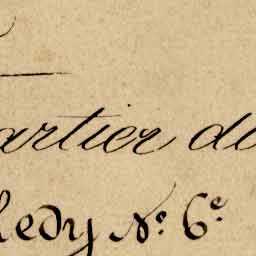 artier du
ledy N.º 6.e